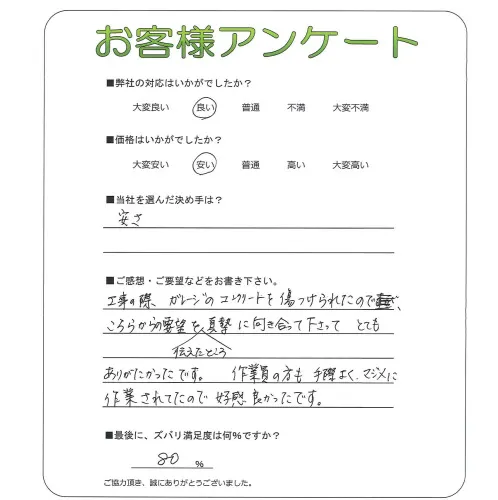 お客様アンケート
■弊社の対応はいかがでしたか？
大変良い 良い 普通 不満 大変不満
■価格はいかがでしたか？
大変安い 安い 普通 高い 大変高い
■当社を選んだ決め手は？
安さ
■ご感想・ご要望などをお書き下さい。
工事の際、ガレージのコンクリートを傷つけられたので、
こちらからの要望を真摯に向き合って下さって とても
伝えたところ
ありがたかったです。 作業員の方も手際よく、マジメに
作業されてたので 好感良かったです。
■最後に、ズバリ満足度は何％ですか？
80 %
ご協力頂き、誠にありがとうございました。